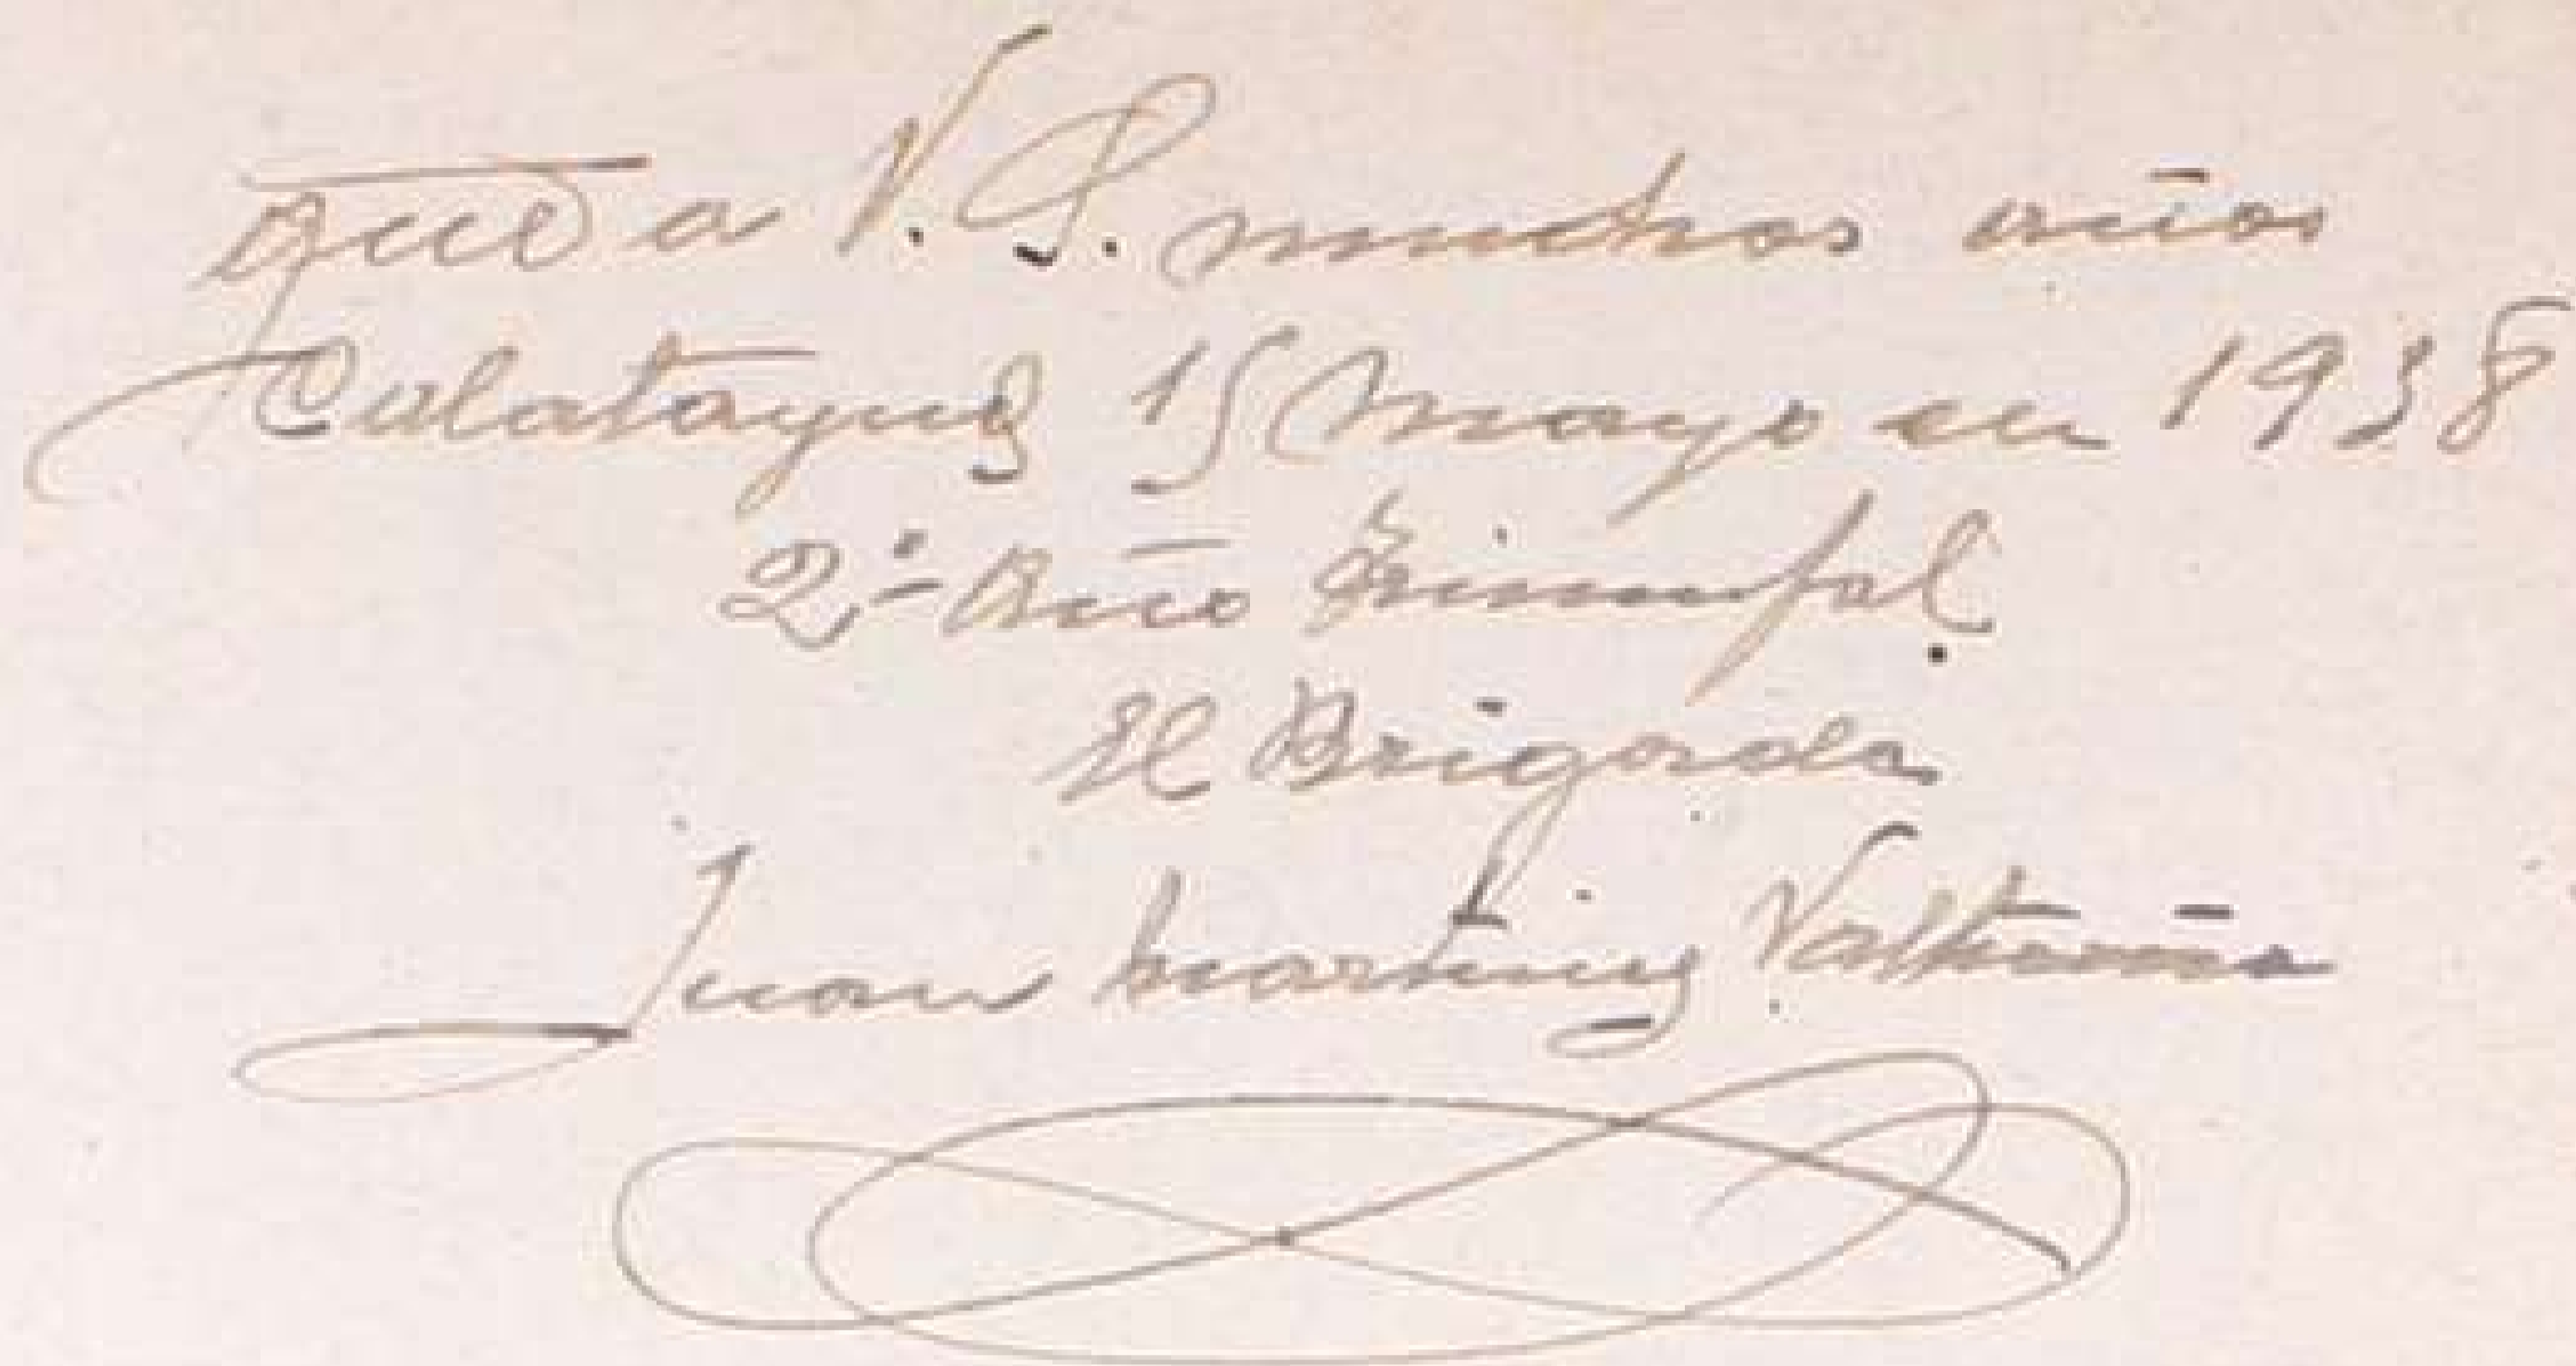 Gue a V. S. muchos años
Calatayud 15 Mayo de 1938
2º Año Triunfal.
El Brigada
Juan Martinez Valtueña